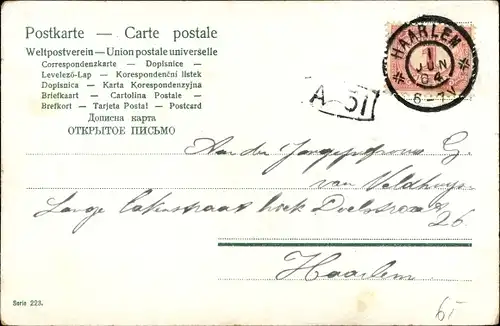 Postkarte — Carte postale
Weltpostverein — Union postale universelle
Correspondenzkarte — Dopisnice —
Levelező-Lap — Korespondenční listek
Dopisnica — Karta Korespondenzyjna
Briefkaart — Cartolina Postale —
Brefkort — Tarjeta Postal — Postcard
Дописна карта
ОТКРЫТОЕ ПИСЬМО
HAARLEM
1
JUN
04
6-7V
A 31
Aan de G.
van Veldhuijsen
Lange hoek Doelstraat
26.
Haarlem
Serie 223.